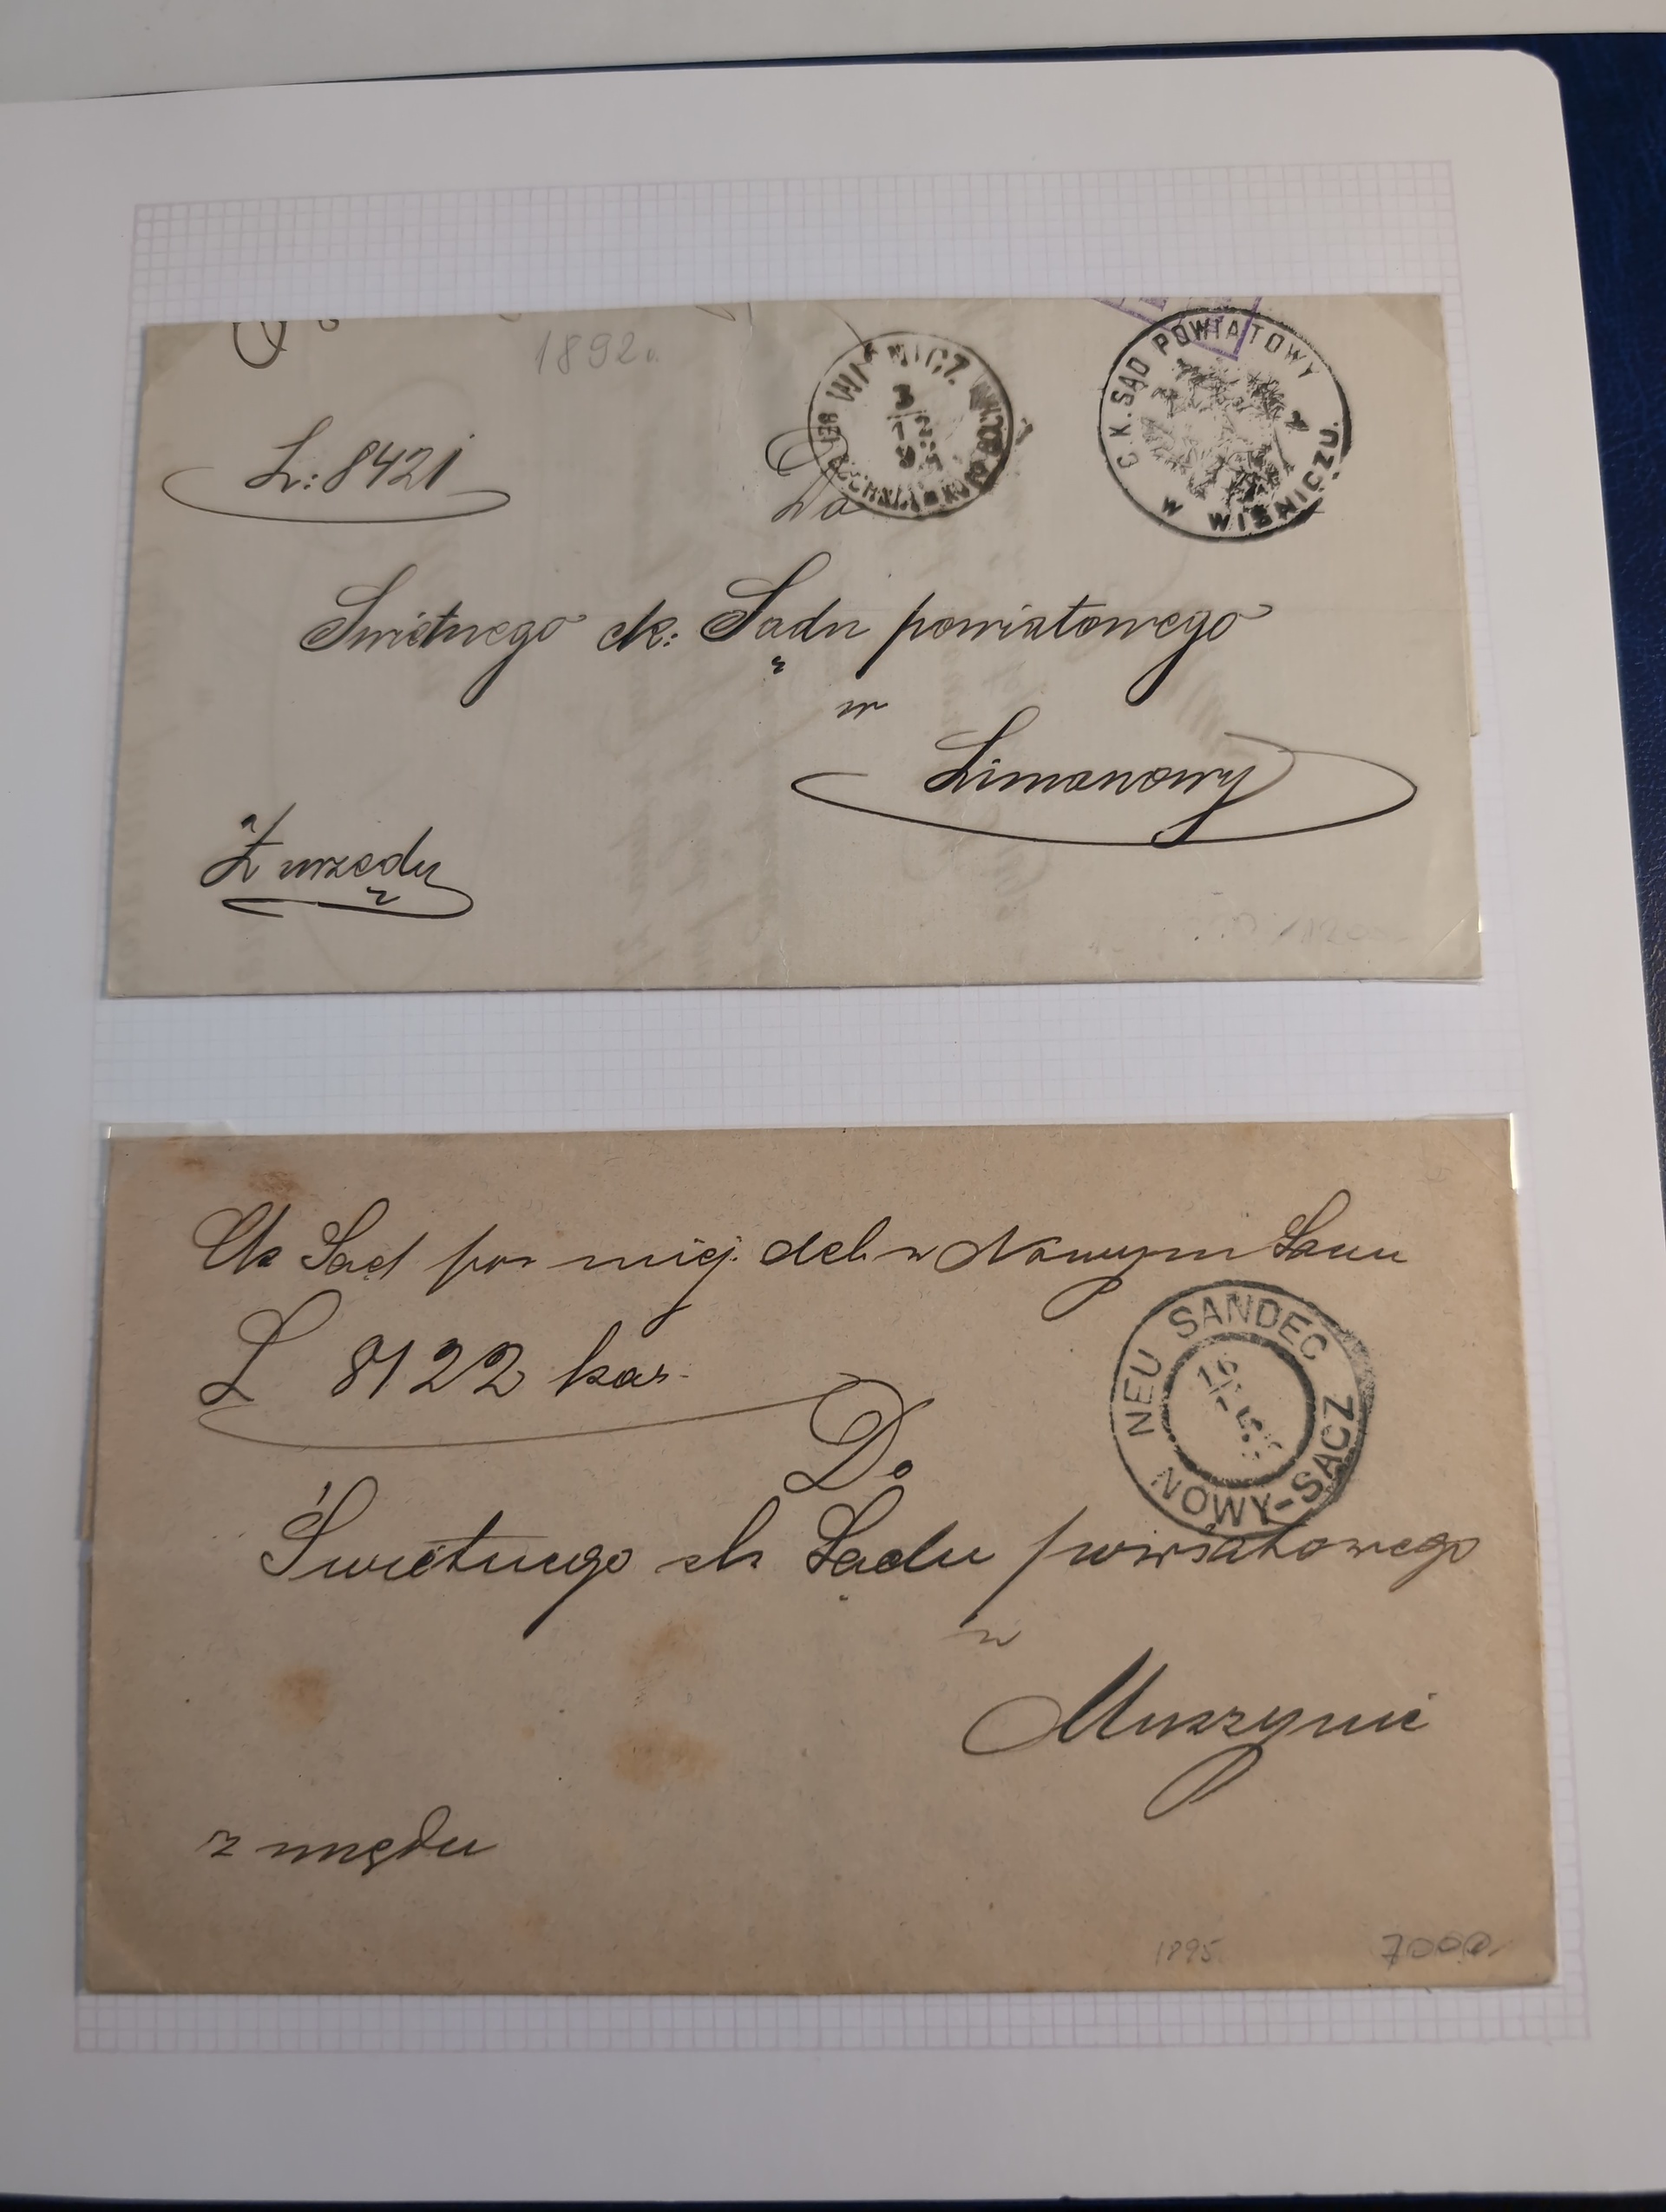 1892r.
WIŚNICZ
BEI BOCHNIA
3
12
C. K. SĄD POWIATOWY
W WIŚNICZU.
L: 8421
Do
Swietnego ck: Sądu powiatowego
w
Limanowy
Z urzędu
Ck Sąd pow miej. del. w Nowym Sączu
L 8122 kar.
NEU SANDEC
NOWY-SACZ
Do
Świetnego ck Sądu powiatowego
w
Muszynie
z urzędu
1895
7000